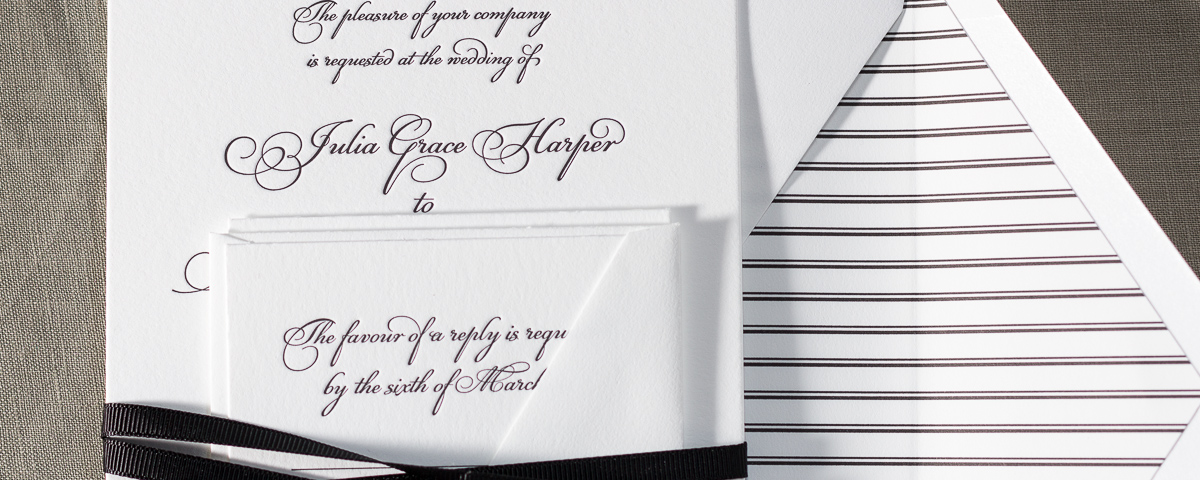 The pleasure of your company
is requested at the wedding of
Julia Grace Harper
to
The favour of a reply is
by the sixth of March